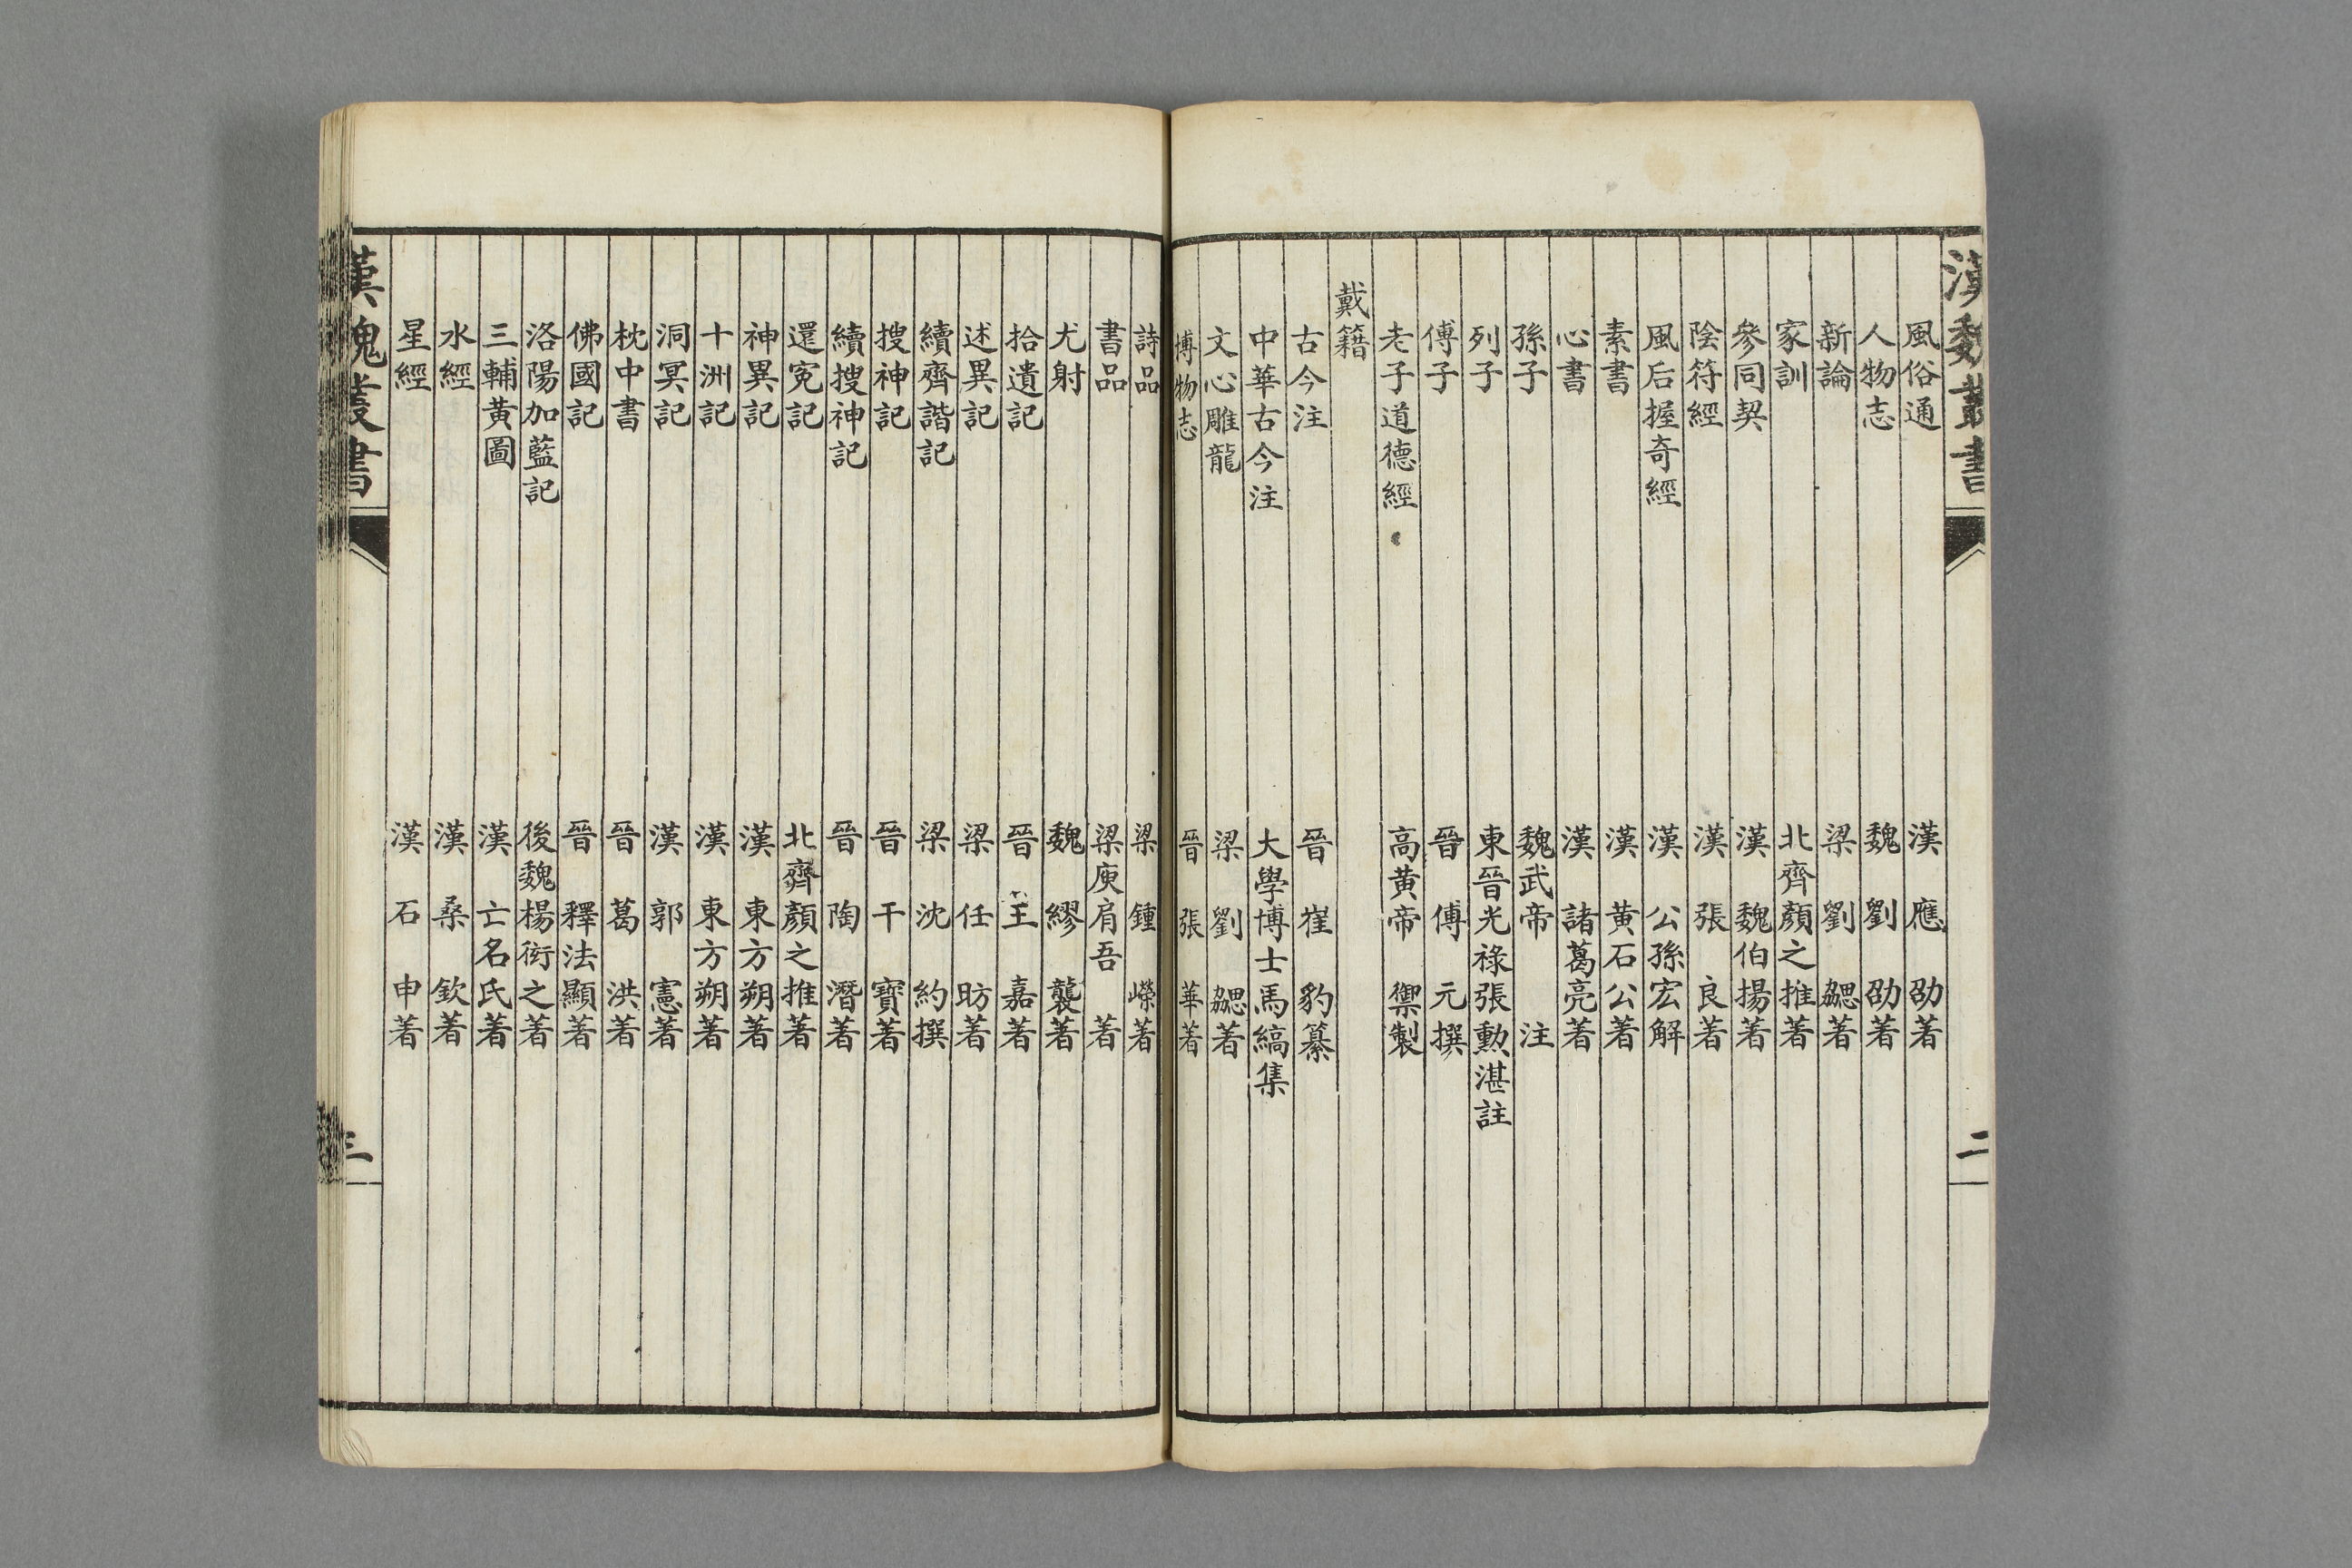 漢魏叢書
二
風俗通 漢應劭著
人物志 魏劉劭著
新論 梁劉勰著
家訓 北齊顏之推著
參同契 漢魏伯揚著
陰符經 漢張良著
風后握奇經 漢公孫宏解
素書 漢黃石公著
心書 漢諸葛亮著
孫子 魏武帝注
列子 東晉光祿張勲湛註
傅子 晉傅元撰
老子道德經 高黃帝禦製
戴籍
古今注 晉崔豹纂
中華古今注 大學博士馬縞集
文心雕龍 梁劉勰著
博物志 晉張華著
詩品 梁鍾嶸著
書品 梁庾肩吾著
尤射 魏繆襲著
拾遺記 晉王嘉著
述異記 梁任昉著
續齊諧記 梁沈約撰
搜神記 晉干寶著
續搜神記 晉陶潛著
還寃記 北齊顏之推著
神異記 漢東方朔著
十洲記 漢東方朔著
洞冥記 漢郭憲著
枕中書 晉葛洪著
佛國記 晉釋法顯著
洛陽加藍記 後魏楊衒之著
三輔黃圖 漢亡名氏著
水經 漢桑欽著
星經 漢石申著
漢魏叢書
三